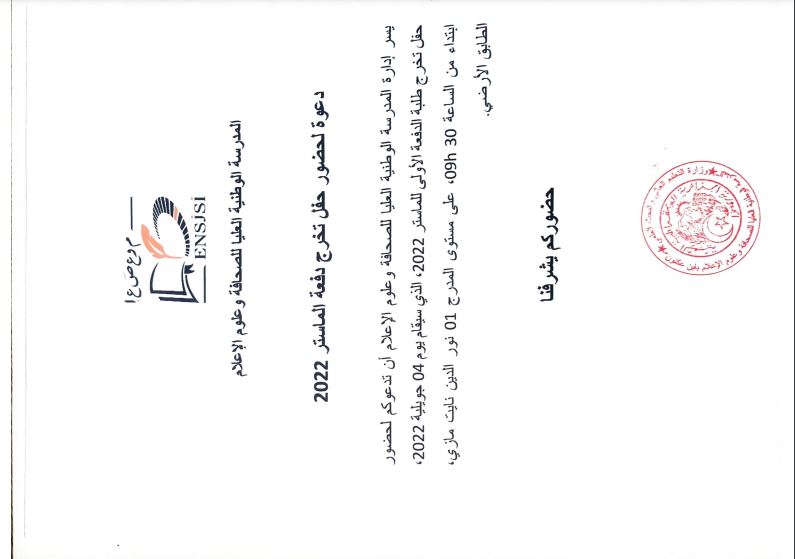 م و ع ص ع إ
ENSJSI
المدرسة الوطنية العليا للصحافة وعلوم الإعلام
دعوة لحضور حفل تخرج دفعة الماستر 2022
يسر إدارة المدرسة الوطنية العليا للصحافة وعلوم الإعلام أن تدعوكم لحضور
حفل تخرج طلبة الدفعة الأولى للماستر 2022، الذي سيقام يوم 04 جويلية 2022،
ابتداء من الساعة 09h 30، على مستوى المدرج 01 نور الدين نايت مازي،
الطابق الأرضي.
حضوركم يشرفنا